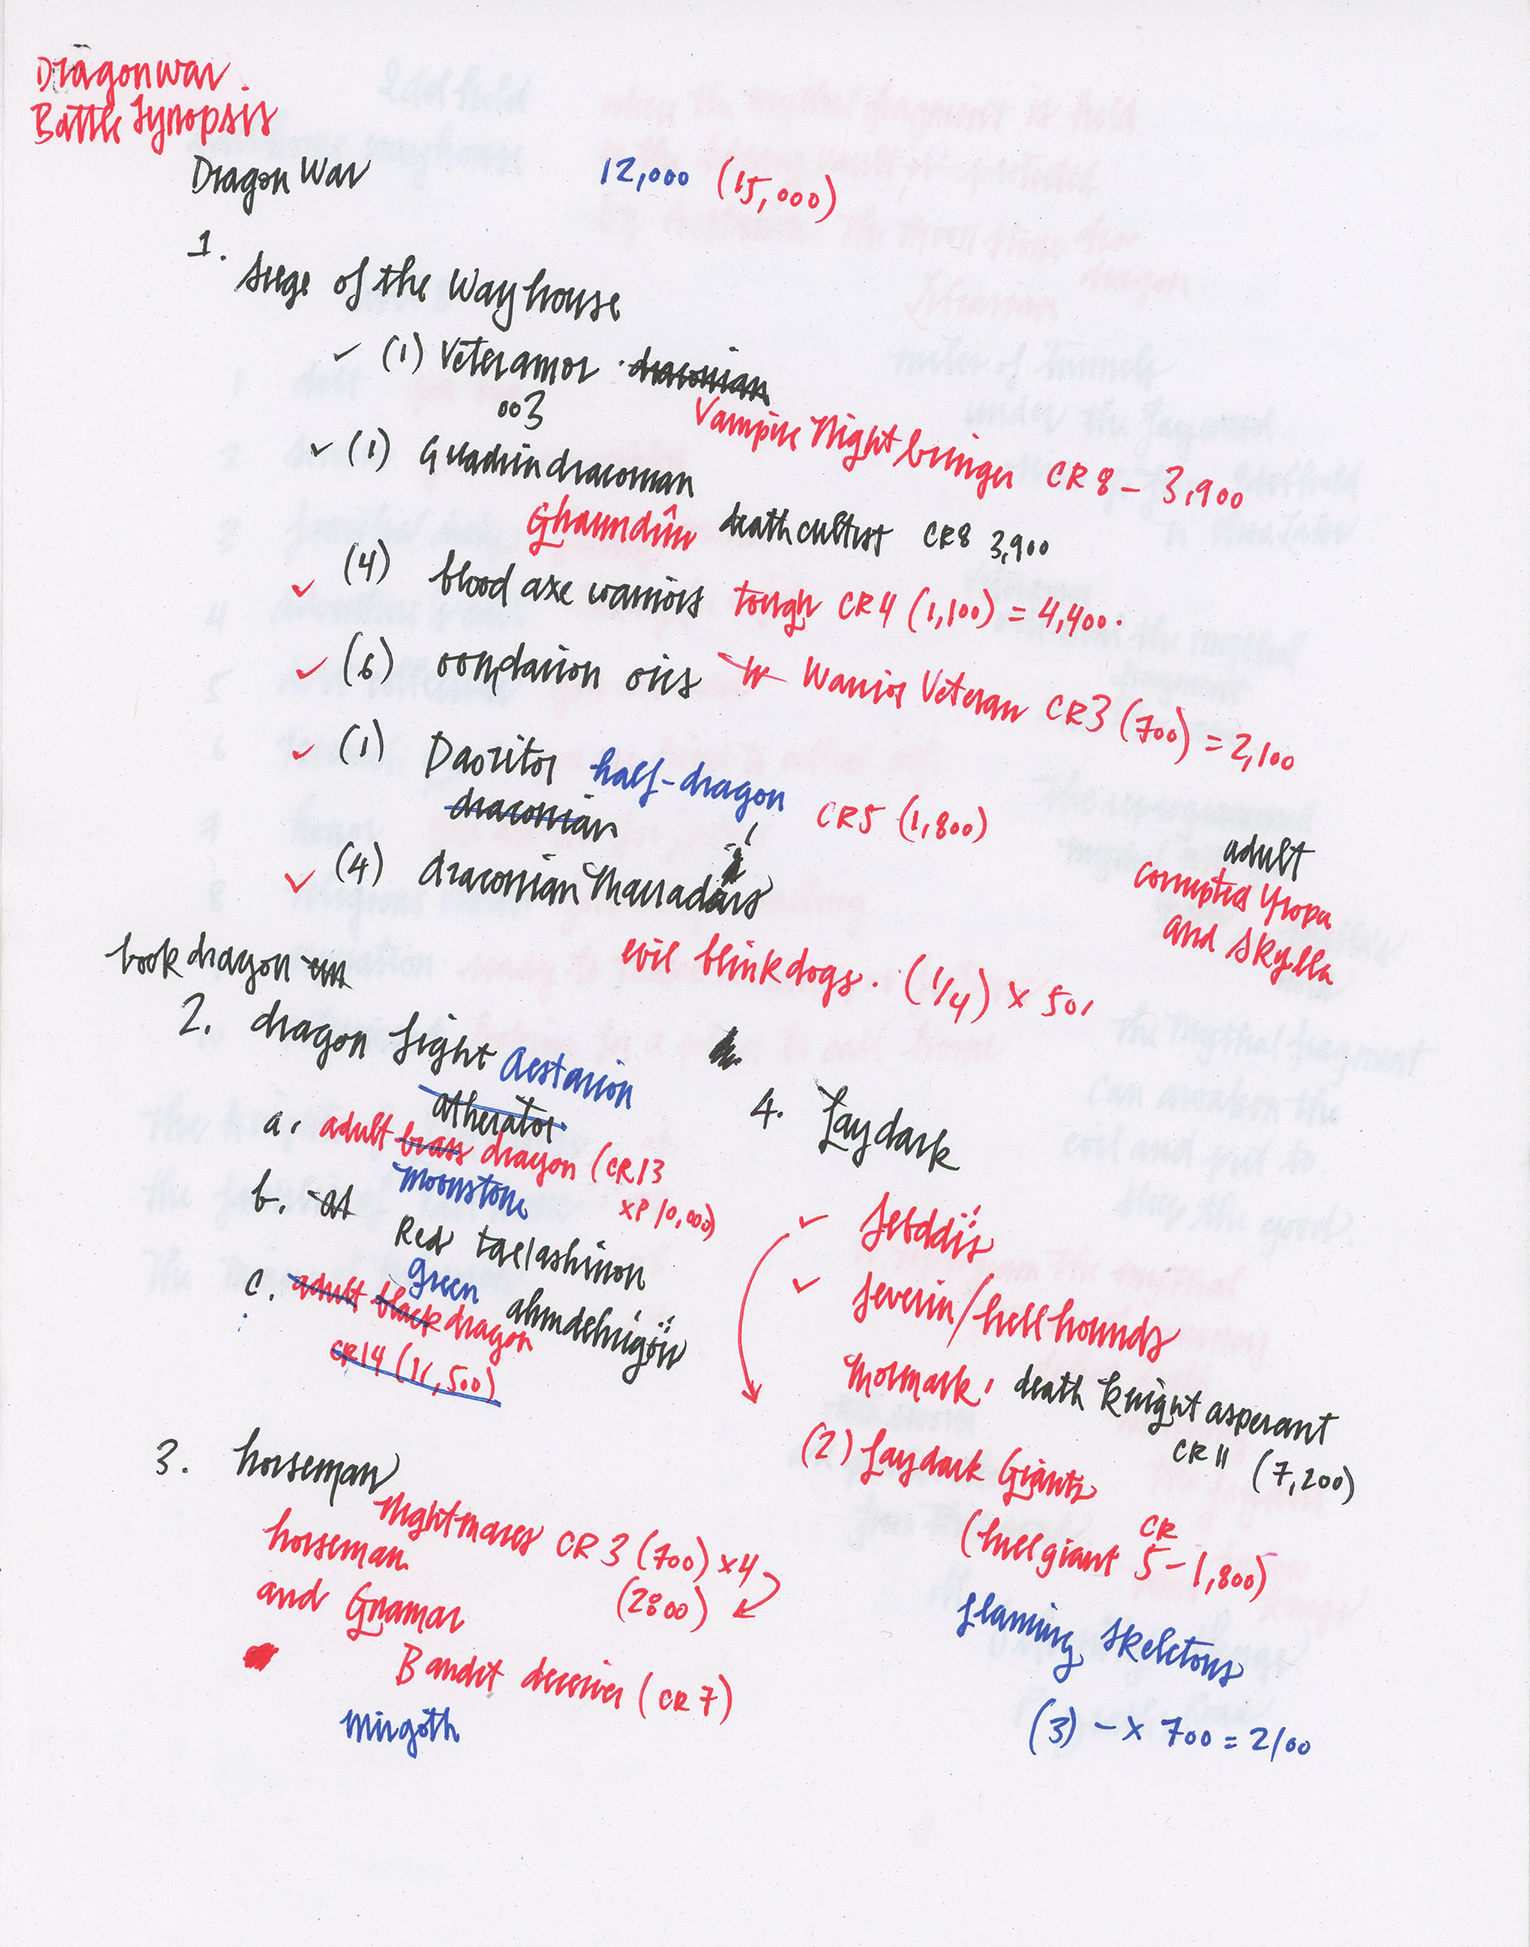 Dragonwar
Battle Synopsis
Dragon War 12,000 (15,000)
1.
Siege of the Wayhouse
✓ (1) Veteramor draconian
003
Vampire Nightbringer CR 8 – 3,900
✓ (1) Quadrin dracoman
Ghaundîn death cultist CR8 3,900
✓ (4) blood axe warriors tough CR4 (1,100) = 4,400.
✓ (6) orcs Warrior Veteran CR3 (700) = 2,100
✓ (1) Daozitor half-dragon CR5 (1,800)
draconian
✓ (4) draconian
evil blink dogs. (1/4) x 50
adult
corrupted
and Skylla
book dragon
2. dragon fight Aestarion
atherator
a. adult brass dragon (CR13
moonstone XP 10,000)
b.
Red taelashinon
green
c. adult black dragon
CR14 (11,500)
3. horseman
Nightmares CR 3 (700) x4
horseman (2800)
and Gnamar
Bandit deceiver (CR 7)
Mirgoth
4. Jaydark
✓
✓ Severin/hell hounds
Mormark, death knight asperant
CR 11 (7,200)
(2) Jaydark Giants
CR
giant 5 – 1,800)
flaming skeletons
(3) – x 700 = 2100